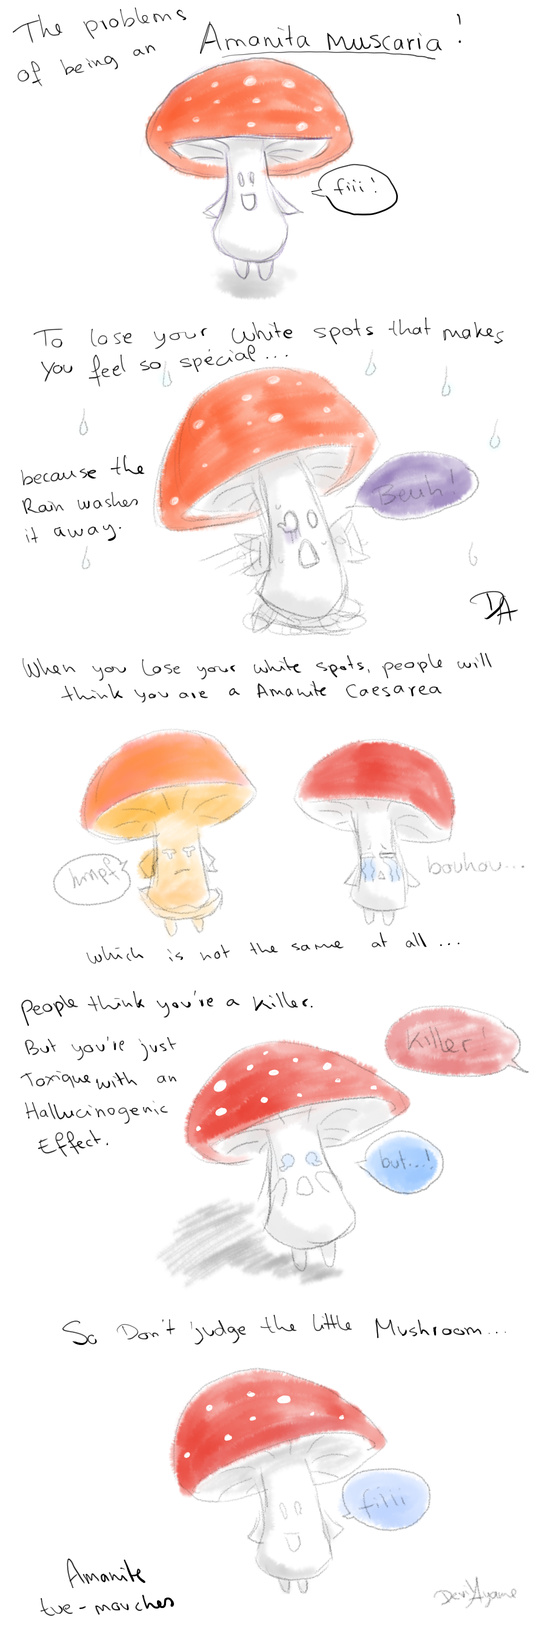 The problems
of being an Amanita muscaria !
fiii !
To lose your white spots that makes
you feel so spécial...
because the
Rain washes
it away.
Beuh !
DA
When you lose your white spots, people will
think you are a Amanite Caesarea
hmpf
bouhou...
which is not the same at all ...
People think you're a killer.
But you're just
Toxique with an
Hallucinogenic
Effect.
Killer !
but...!
So Don't judge the little Mushroom...
fiiii
Amanite
tue-mouches
DevilAyame